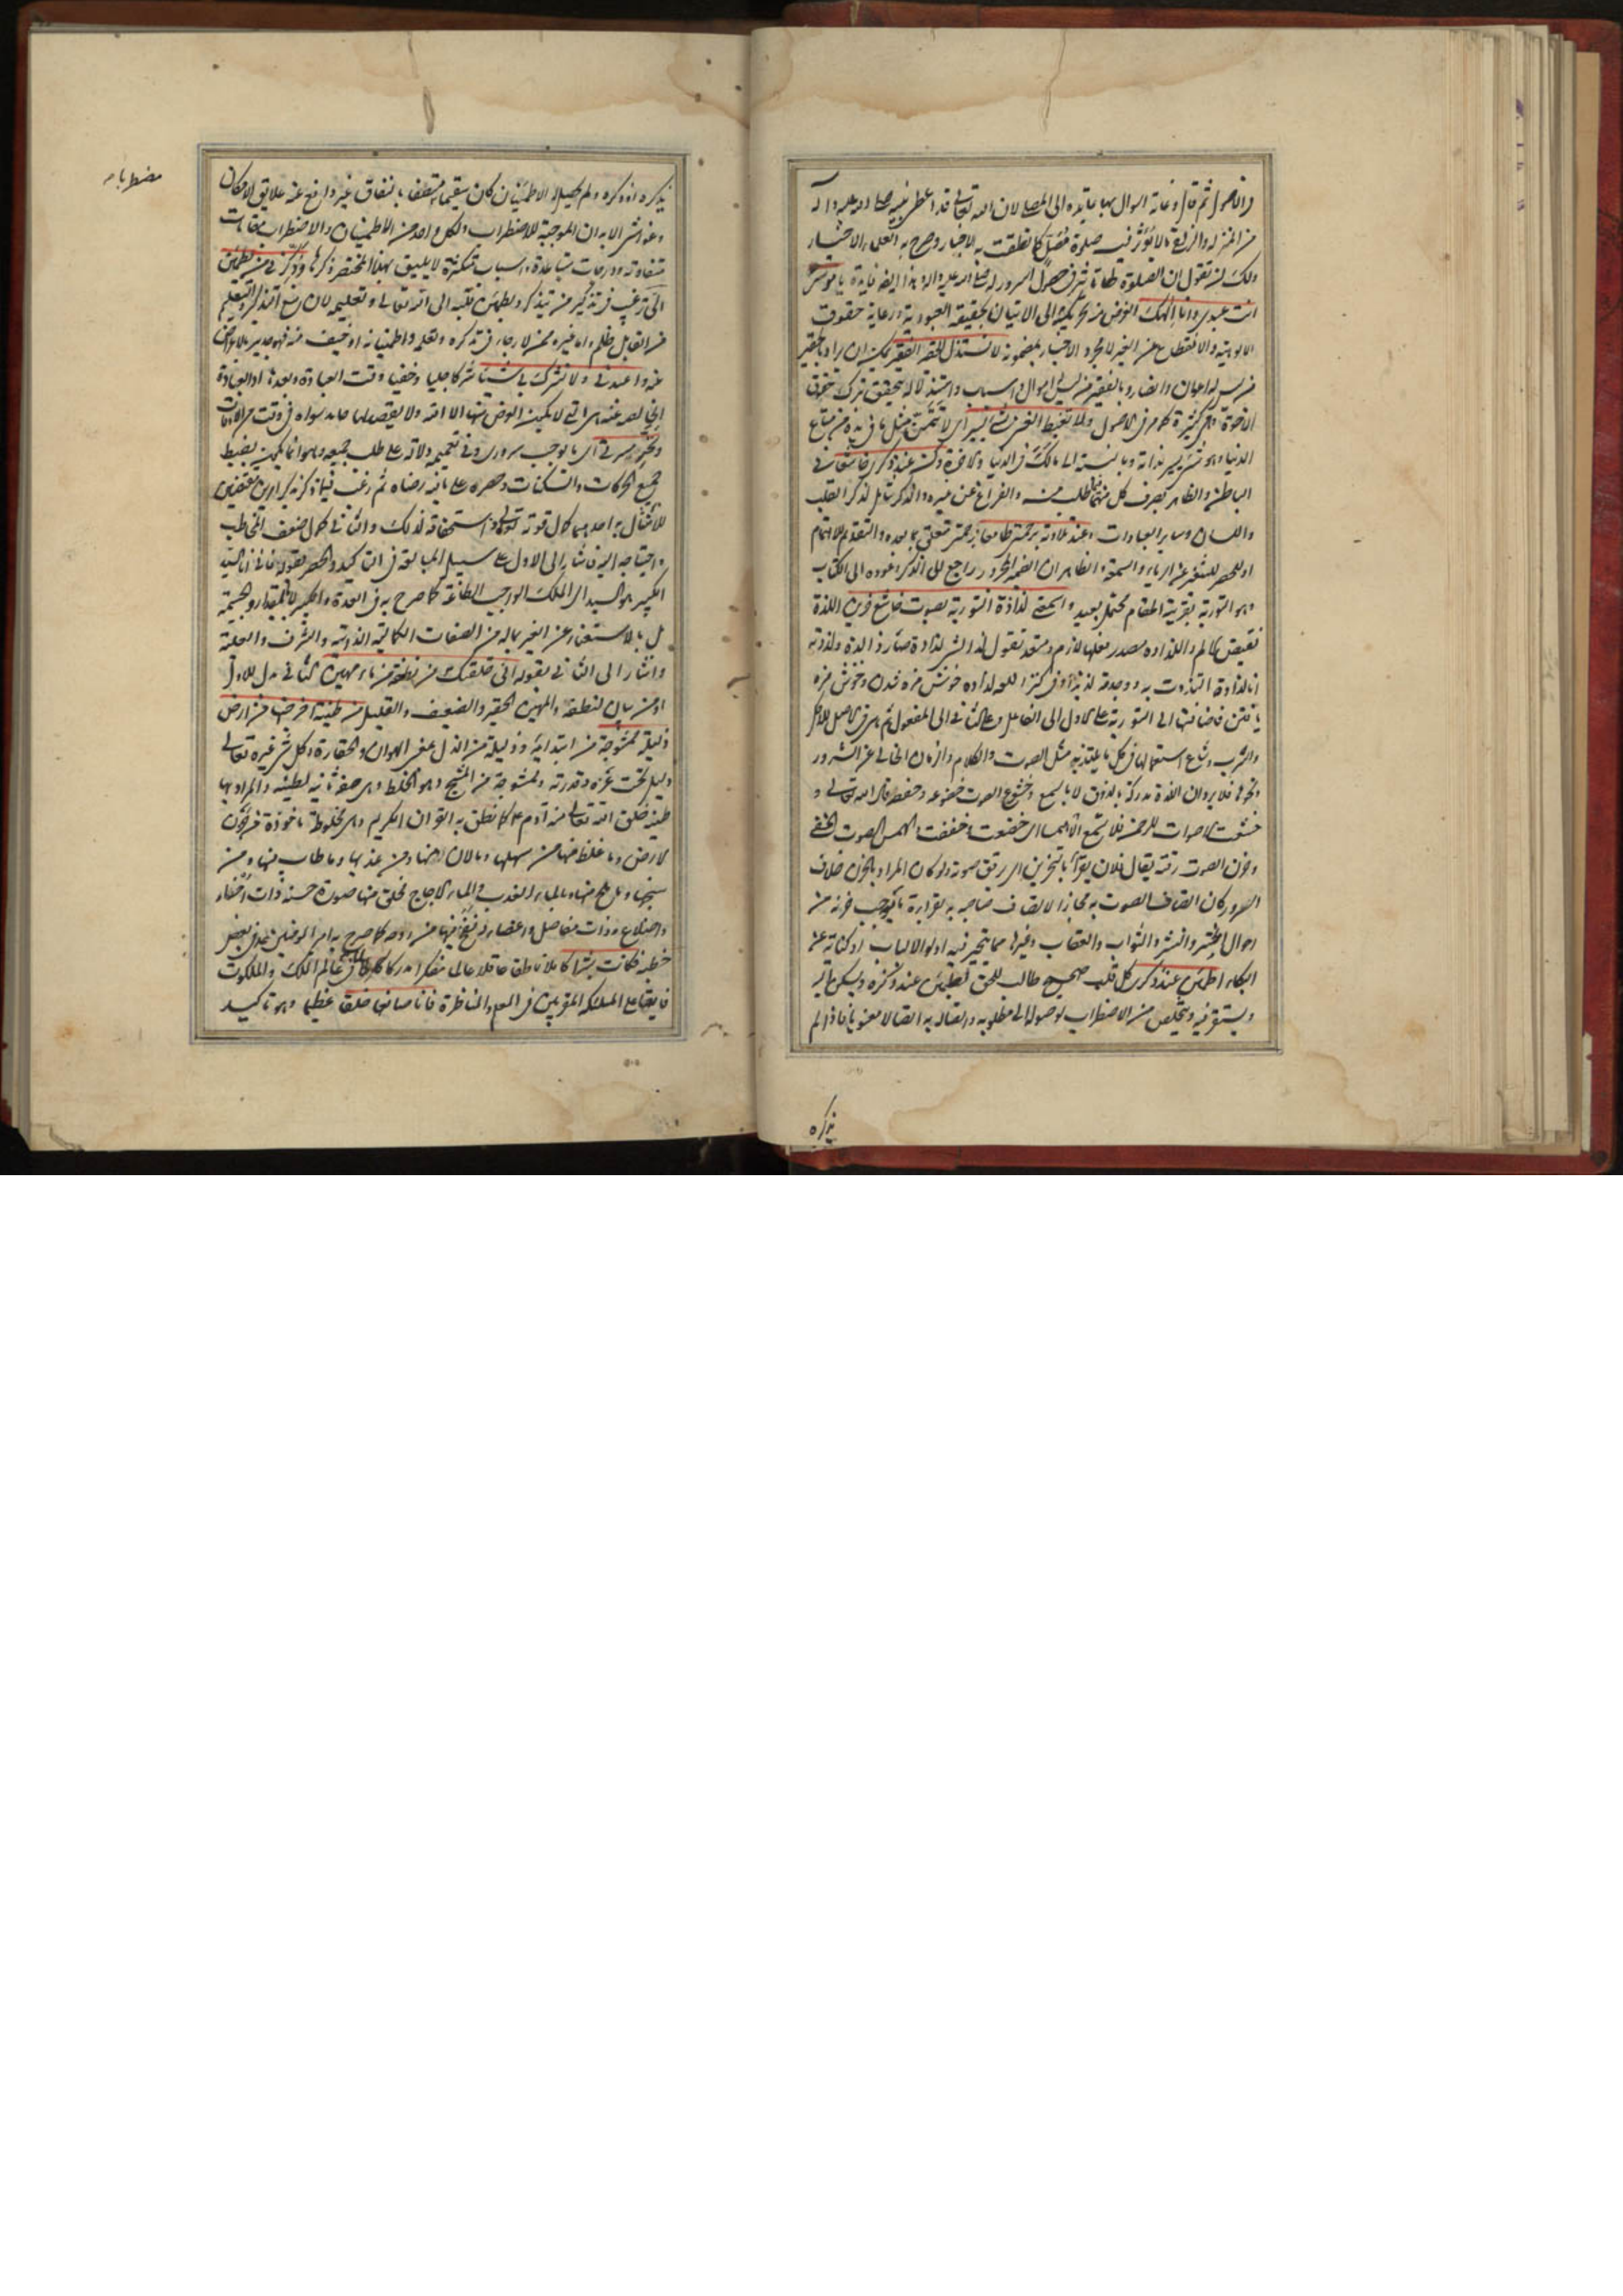 والأصول ثم قال وغاية السؤال بها عائدة الى المصلي لان الله تعالى قد اعطى نبيه صلى الله عليه وآله
من المنزلة والزلفى ما لا يؤثر فيه صلوة مصل كما نطقت به الاخبار وصرح به العلماء الاخيار
ولك ان تقول ان الصلوة لها تأثير في حصول السرور له صلى الله عليه وآله وهذا ايضا فائدة يا موسى
انت عبدي وانا الهك الغرض منه تحريكه الى الاتيان بحقيقة العبودية ورعاية حقوق
الالوهية والانقطاع عن الغير لا مجرد الاخبار بمضمونه لا تستذل الحقير الفقير يمكن ان يراد بالحقير
من ليس له اعوان وانصار وبالفقير من ليس له اموال واسباب واستذلاله يتحقق بترك حقوق
الاخوة وهي كثيرة كما مر في الاصول ولا تغبط الغني بشيء يسير اي لا تتمن مثل ما في يده من متاع
الدنيا وهو شيء يسير بذاته وبالنسبة الى مالك في الدنيا والاخرة وكن عند ذكري خاشعا في
الباطن والظاهر بصرف كل منهما فيما طلب منه والفراغ عن غيره والذكر شامل لذكر القلب
واللسان وساير العبادات وعند تلاوته برحمتي طامعا برحمتي متعلق بما بعده والتقديم للاهتمام
او للحصر للتنبيه عن الرياء والسمعة والظاهر ان الضمير المجرور راجع الى الذكر وعوده الى الكتاب
وهو التورية بقرينة المقام محتمل بعيد واسمعني لذاذة التورية بصوت خاشع حزين اللذة
نقيض الالم واللذاذة مصدر فعلها لازم ومتعد تقول لذ الشيء لذاذة صار ذا لذة ولذذته
انا لذاذة التذذت به ووجدته لذيذا وفي كنز اللغة لذاذه خوش مزه شدن وخوش مزه
يافتن فاضافتها الى التورية على الاول الى الفاعل وعلى الثاني الى المفعول ثم هي في الاصل للاكل
والشرب وشاع استعمالها في كل ما يلتذ به مثل الصوت والكلام والزمان الخالي عن الشرور
ونحوها فلا يرد ان اللذة مدركة بالذوق لا بالسمع وخشوع الصوت خضوعه وخفضه قال الله تعالى و
خشعت الاصوات للرحمن فلا تسمع الا همسا اي خضعت وخفضت الهمس الصوت الخفي
وحزن الصوت رقته يقال فلان يقرأ بالتحزين اي يرقق صوته ولو كان المراد بالحزن خلاف
السرور كان اتصاف الصوت به مجازا لاتصاف صاحبه به لقراءة ما يوجب حزنه من
احوال الحشر والنشر والثواب والعقاب وغيرها مما يتحير فيه اولوا الالباب او كناية عن
البكاء اطمئن عند ذكري كل قلب صحيح طالب للحق يطمئن عند ذكره ويسكن اليه
ويستقر فيه ويتخلص من الاضطراب لوصوله الى مطلوبه واتصاله به اتصالا معنويا فاذا لم
يذكره
يذكره او ذكره ولم يحصل له الاطمينان كان سقيما متصفا بالنفاق غير فارغ عن علايق الامكان
مضطربا
متفاوتة ودرجات متباعدة واسباب متكثرة لا يليق بهذا المختصر ذكرها وذكر بي من يطمئن
الي ترغيب في تذكير من يتذكر ويطمئن قلبه الى الله تعالى وتعليمه
عنه واعبدني ولا تشرك بي شيئا شركا جليا وخفيا وقت العبادة وبعدها او العبادة
الخالصة عنه هي التي لا يكون الغرض منها الا الله ولا يقصد بها حامد سواه في وقت من الاوقات
جميع الحركات والسكنات وحصره على ما فيه رضاه ثم رغب فيما ذكره بذكر امرين مقتضيين
للامتثال به احدهما كمال قوته تعالى واستحقاقه لذلك والثاني كمال ضعف المخاطب
واحتياجه اليه فاشار الى الاول على سبيل المبالغة في التاكيد والحصر بقوله فاني انا السيد
الكبير هو السيد اي الملك الواجب الطاعة كما صرح به في العدة والكبير لا بالمقدار والجسمية
بل بالاستغناء عن الغير بماله من الصفات الكمالية الذاتية والشرف والعلية
واشار الى الثاني بقوله اني خلقتك من نطفة من ماء مهين الثاني بدل للاول
او من بيان لنطفة والمهين الحقير والضعيف والقليل من طينة اخرجتها من ارض
ذليلة ممشوجة من ابتدائية وذليلة من الذل بمعنى الهوان والحقارة وكل شيء غيره تعالى
ذليل تحت عزه وقدرته وممشوجة من المشج وهو الخلط وهي صفة ثانية لطينة والمراد بها
طينة خلق الله تعالى منه آدم ع كما نطق به القران الكريم وهي مخلوطة ماخوذة من حزن
الارض وما غلظ منها من سهلها وما لان منها ومن عذبها وما طاب منها ومن
سبخها وملح منها وبالماء العذب والماء الاجاج فخلق منها صورة حسنة ذات احناء
واضلاع وذات مفاصل واعضاء ثم نفخ فيها من روحه كما صرح به امير المؤمنين ع في بعض
خطبه فكانت بشرا كاملا ناطقا عاقلا عالما متفكرا مدركا لما في عالم الملك والملكوت
فايقا على الملئكة المقربين في العلم والمناظرة فانا صانعها خلقا عظيما وهو تاكيد